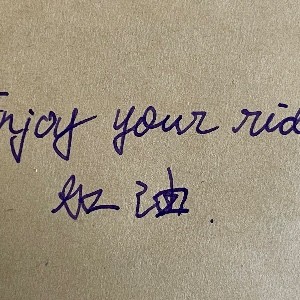 Enjoy your rid
加油.